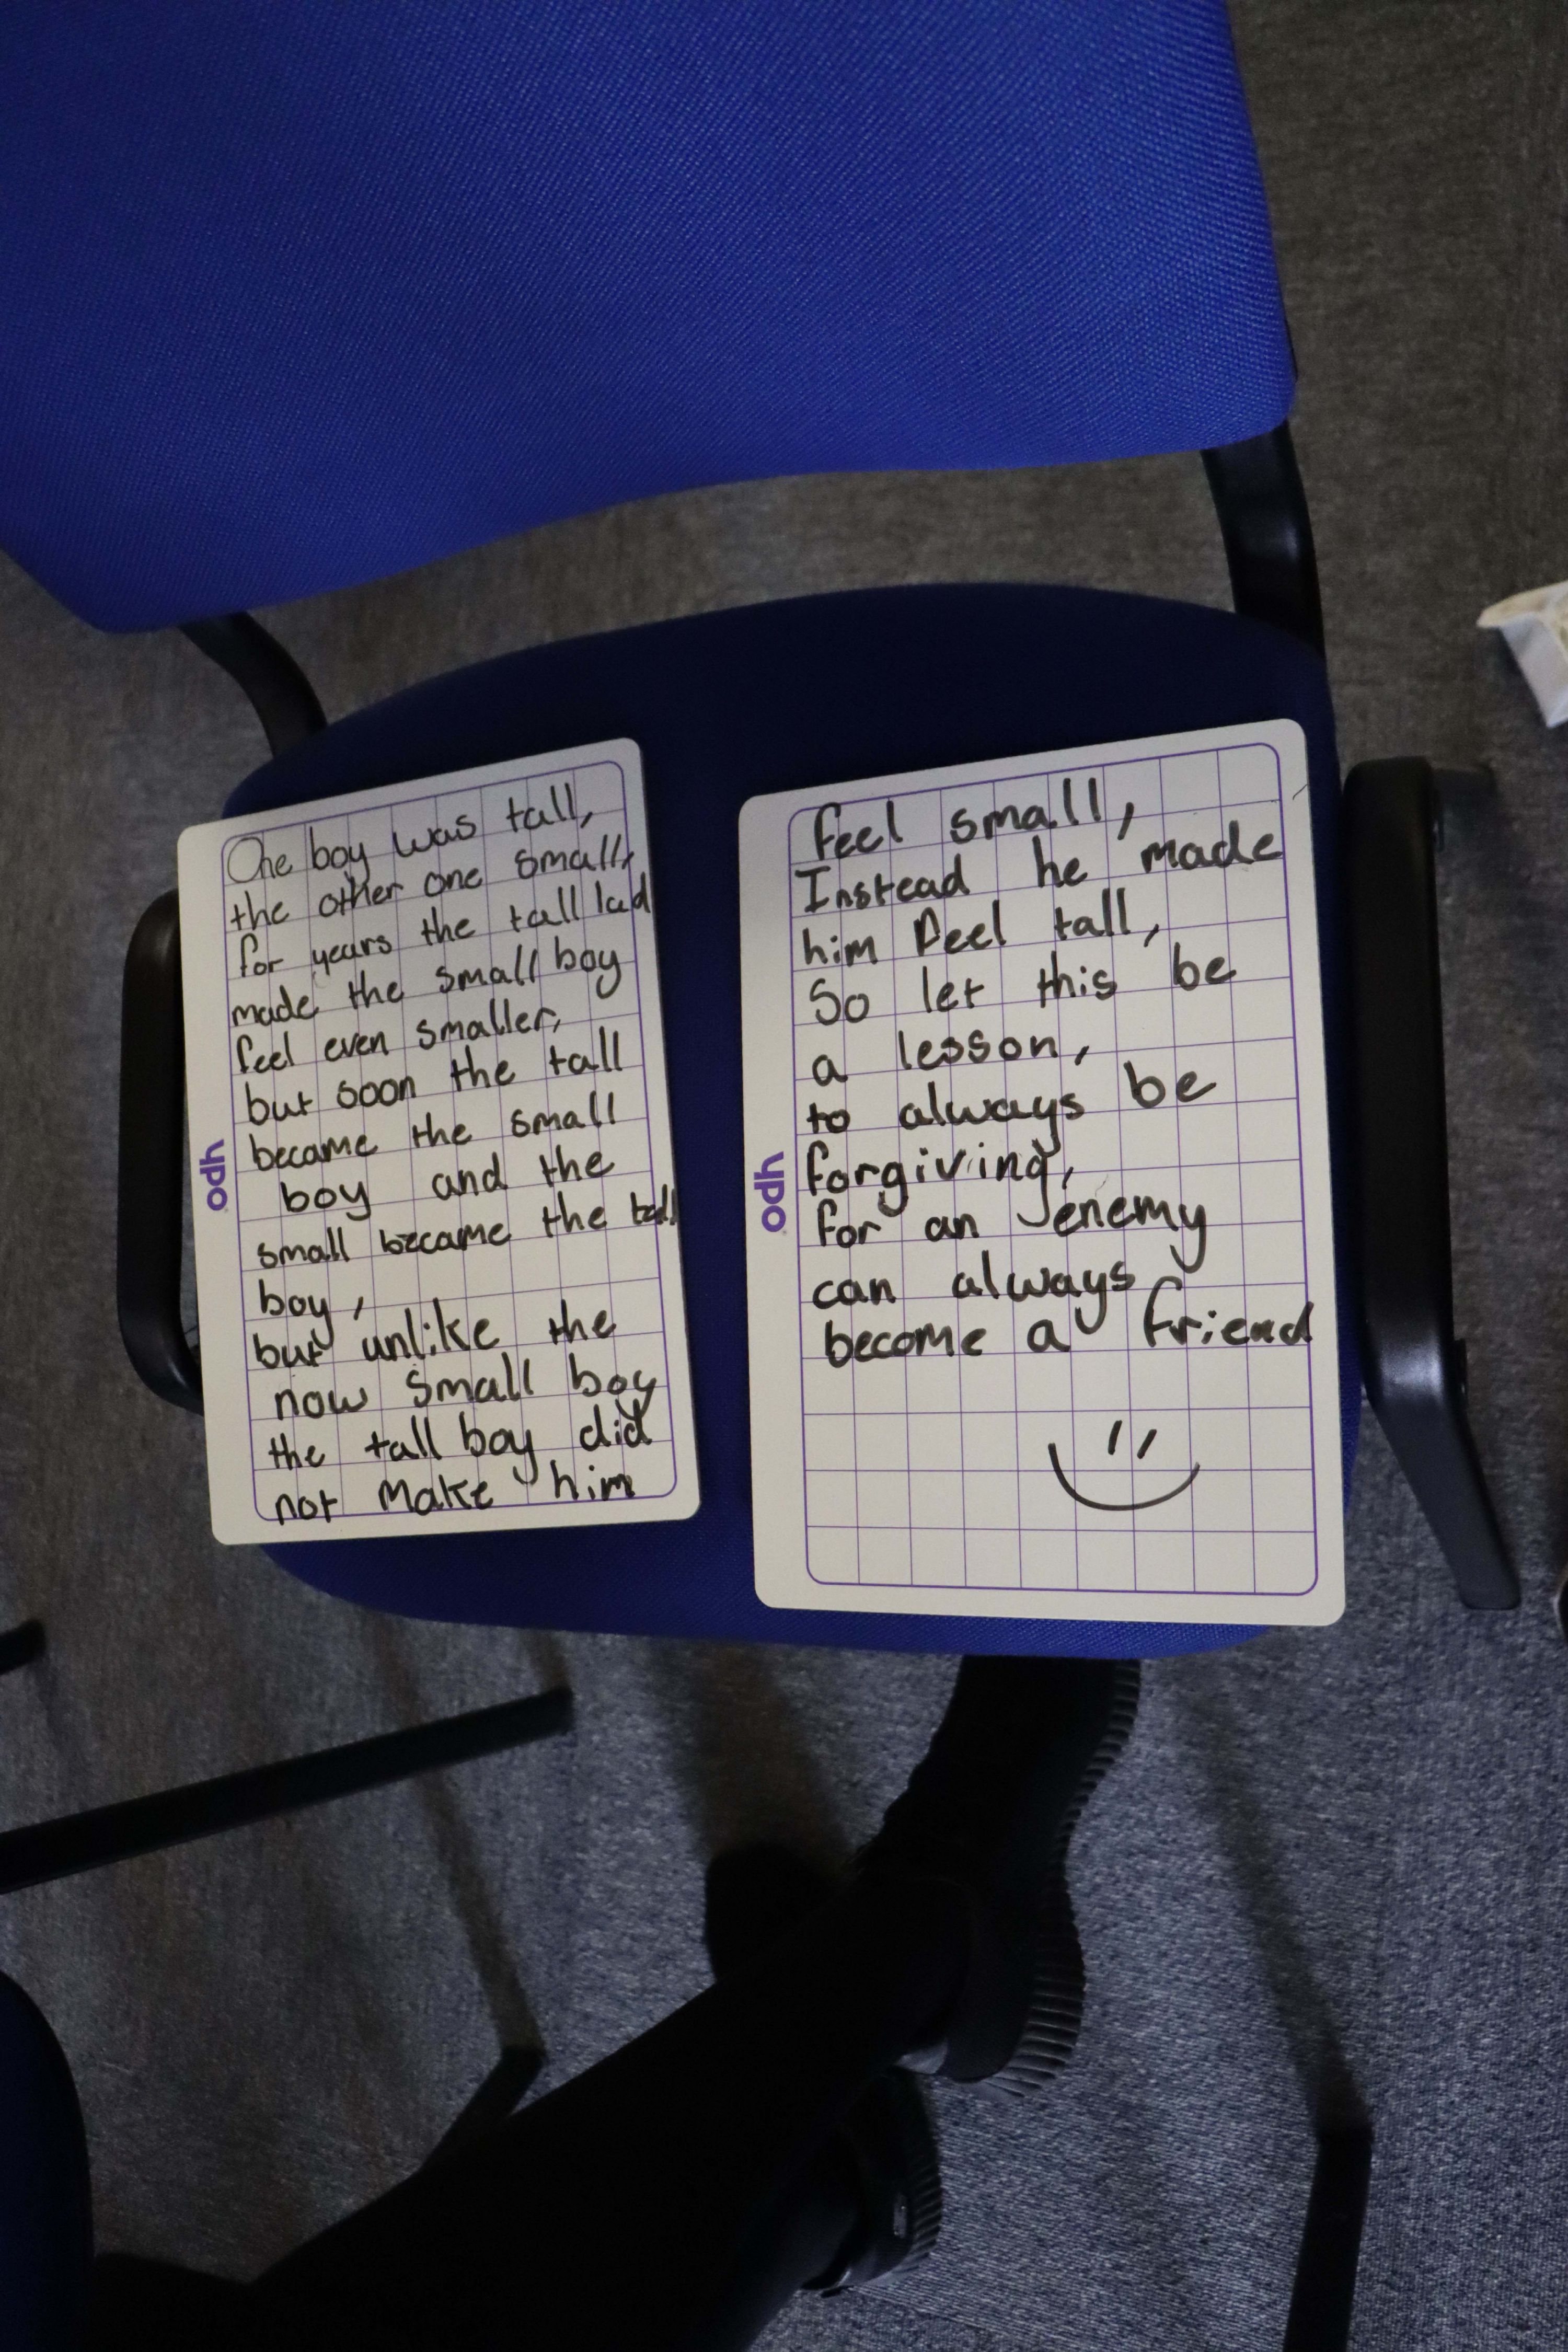 One boy was tall,
the other one small,
for years the tall lad
made the small boy
feel even smaller,
but soon the tall
became the small
boy and the
small became the tall
boy,
but unlike the
now small boy
the tall boy did
not make him
ydo
feel small,
Instead he made
him feel tall,
So let this be
a lesson,
to always be
forgiving,
for an enemy
can always
become a friend
ydo